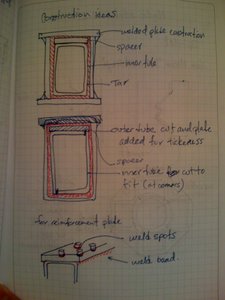 Construction ideas
welded plate construction
spacer
inner tube
Tar
outer tube cut and plate
added for tickeness
spacer
inner tube cut to
fit (at corners)
for reinforcement plate
weld spots
weld bead.